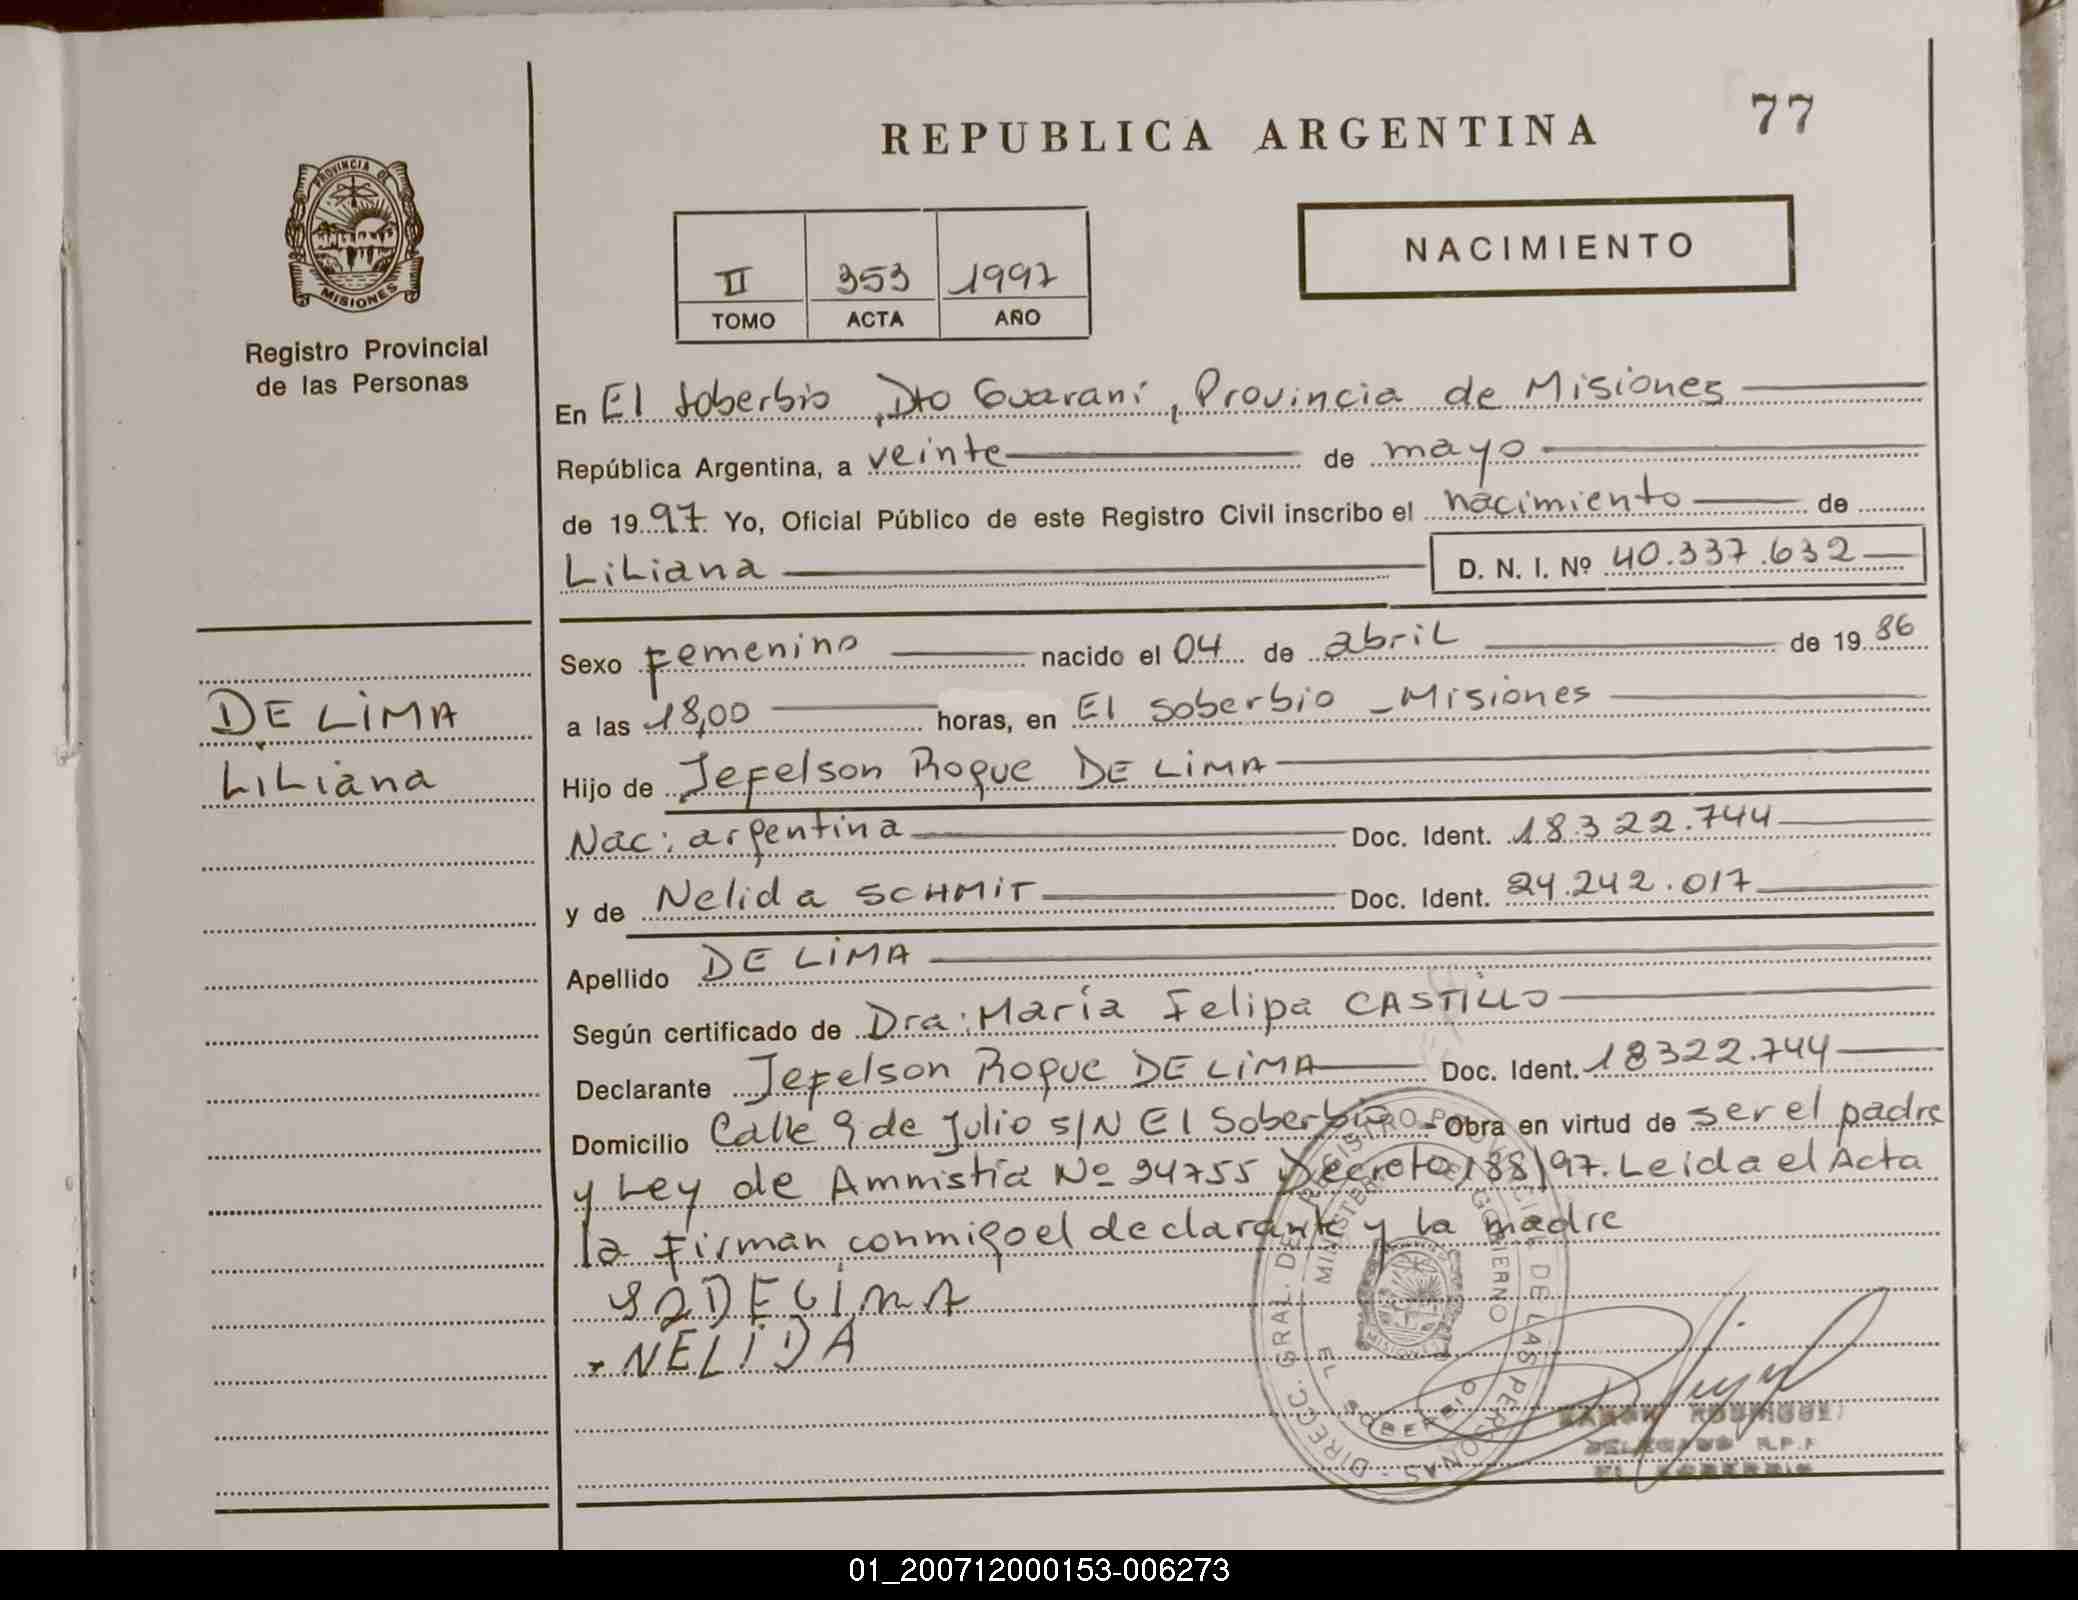 REPUBLICA ARGENTINA
77
PROVINCIA DE
MISIONES
Registro Provincial
de las Personas
NACIMIENTO
II 353 1997
TOMO ACTA AÑO
En El Soberbio, Dto Guaraní, Provincia de Misiones
República Argentina, a veinte de mayo
de 1997. Yo, Oficial Público de este Registro Civil inscribo el nacimiento de
Liliana D. N. I. Nº 40.337.632
Sexo Femenino nacido el 04 de abril de 1986
a las 18,00 horas, en El Soberbio - Misiones
DE LIMA
Liliana
Hijo de Jefelson Roque DE LIMA
Nac: argentina Doc. Ident. 18.322.744
y de Nelida SCHMIT Doc. Ident. 24.242.017
Apellido DE LIMA
Según certificado de Dra: María Felipa CASTILLO
Declarante Jefelson Roque DE LIMA Doc. Ident. 18322.744
Domicilio Calle 9 de Julio s/N El Soberbio - Obra en virtud de ser el padre
y Ley de Ammistia Nº 24755 Decreto 188/97. Leida el Acta
la firman conmigo el declarante y la madre
DELIMA
NELIDA
DIRECC. GRAL. DEL REGISTRO PROVINCIAL DE LAS PERSONAS -
MINISTERIO DE GOBIERNO
EL SOBERBIO
MISIONES
RAMON RODRIGUEZ
DELEGADO R.P.P
EL SOBERBIO
01_200712000153-006273